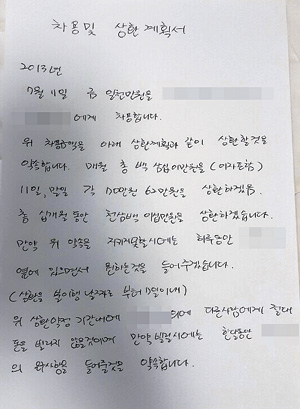 차용및 상환 계획서
2013년
7월 11일 금 일천만원을
에게 차용합니다.
위 차용액을 아래 상환계획과 같이 상환할것을
약속합니다. 매월 총 백 삼십이만원을 (이자포함)
11일, 말일 각 70만원 62만원을 상환하겠음.
총 십개월 동안 천삼백 이십만원을 상환하겠습니다.
만약 위 약속을 지키지못할시에는 하루동안
옆에 있으면서 원하는것을 들어주겠습니다.
(상환일 불이행 날짜로 부터 10일이내)
위 상환약정 기간내에 외에 다른사람에게 절대
돈을 빌리지 않을것이며 만약 빌릴시에는 한달동안
의 요구사항을 들어줄것을 약속합니다.